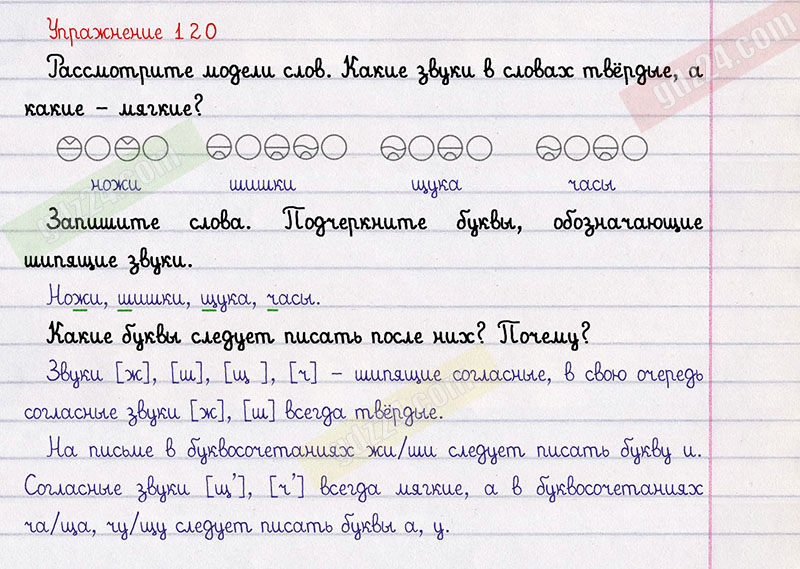 Упражнение 120
gdz24.com
Рассмотрите модели слов. Какие звуки в словах твёрдые, а
какие – мягкие?
gdz24.com
ножи шишки щука часы
Запишите слова. Подчеркните буквы, обозначающие
шипящие звуки.
Ножи, шишки, щука, часы.
Какие буквы следует писать после них? Почему?
Звуки [ж], [ш], [щ ], [ч] – шипящие согласные, в свою очередь
согласные звуки [ж], [ш] всегда твёрдые.
gdz24.com
На письме в буквосочетаниях жи/ши следует писать букву и.
Согласные звуки [щ’], [ч’] всегда мягкие, а в буквосочетаниях
ча/ща, чу/щу следует писать буквы а, у.